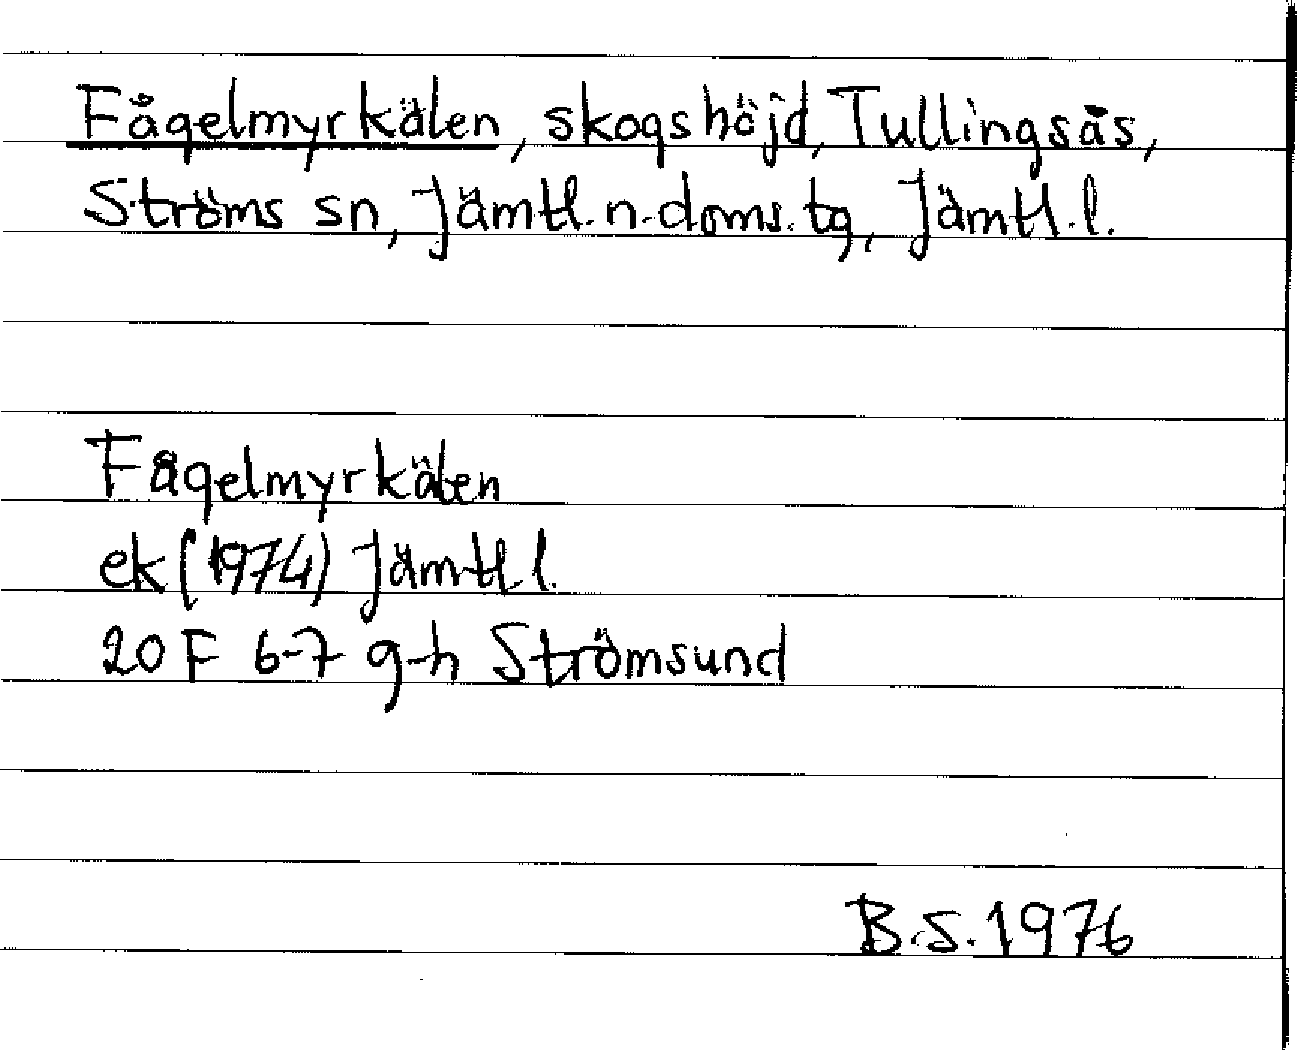 Fågelmyrkälen, skogshöjd, Tullingsås,
Ströms sn, Jämtl. n. doms. tg, Jämtl. l.
Fågelmyrkälen
ek (1974) Jämtl. l.
20 F 6-7 g-h Strömsund
B.S. 1976